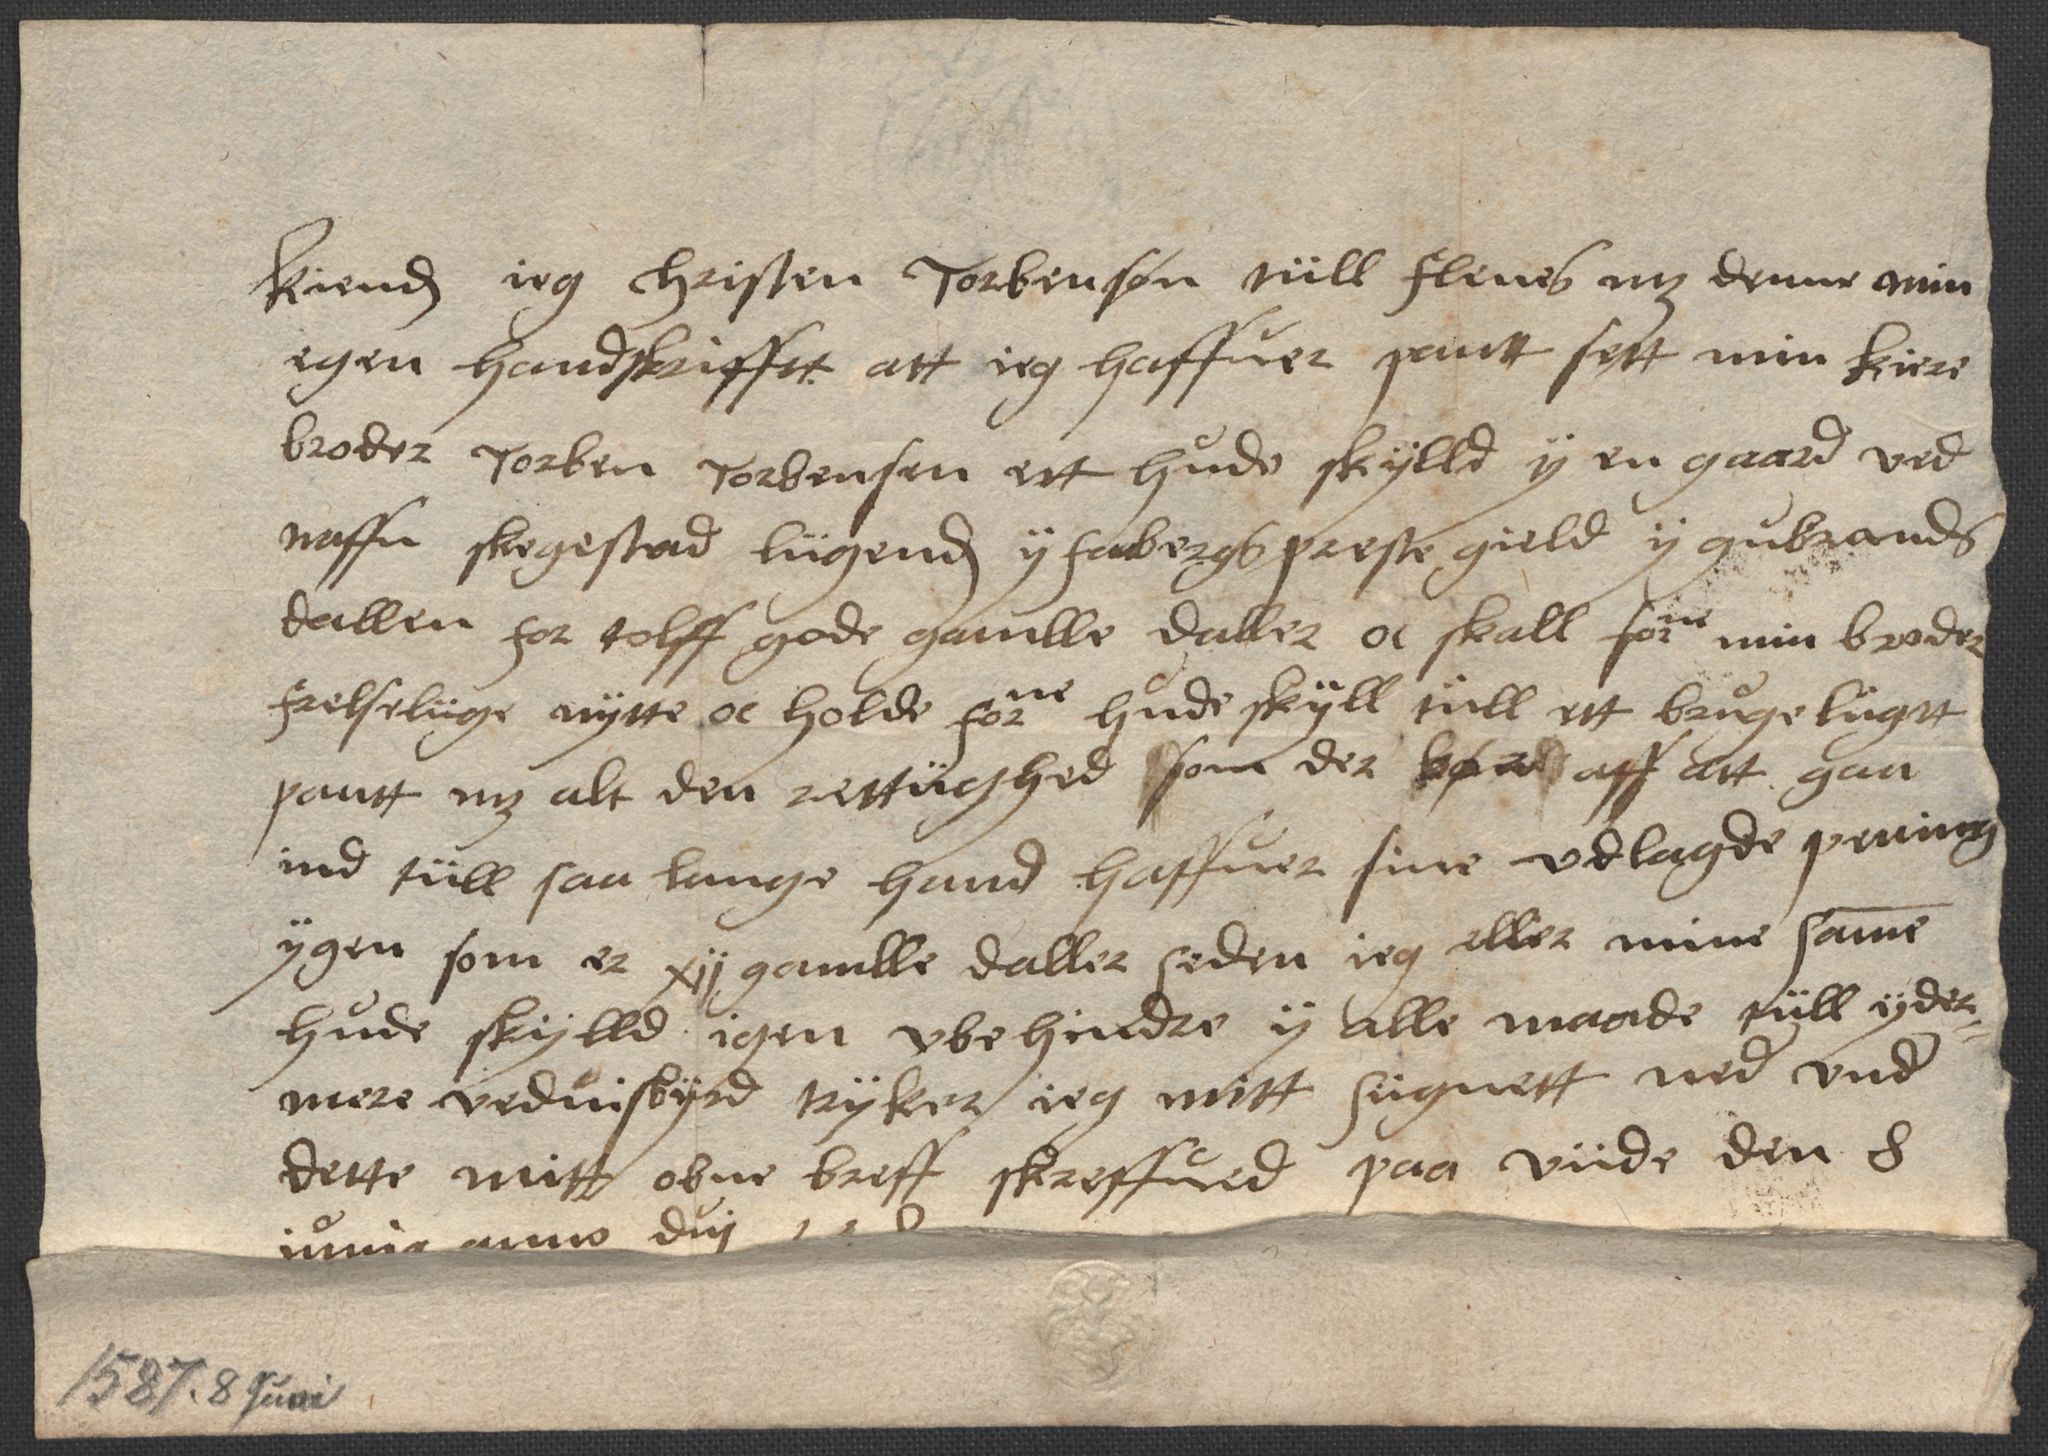 Kiend ieg Christen Torbensøn tüll Flenes mz denne min
egen handskrifftt att ieg haffuer pantt sett min kiere
broder Torben Torbensen ett hude skylld ÿ en gaard ved
naffn skegestad lügend ÿ fabergs preste gield ÿ gubrands
dallen for tolff gode gamlle daller oc skall forne min broder
frelselüge nÿtte oc holde forne hude skÿll tüll ett brugelügtt
pantt mz alt den rettüghed som der bør aff att gaa
ind tüll saa lange hand haffuer sine vdlagde pening
ÿgen som er xij gamlle daller seden ieg eller mine same
hude skÿlld igen vbehindre ÿ alle maade tüll ÿder-
mere veduisbÿrd trÿker ieg mitt sügnett ned vnd
dette mitt obne breff skreffued paa viide den 8
iunie anno dnj
1587. 8 Juni